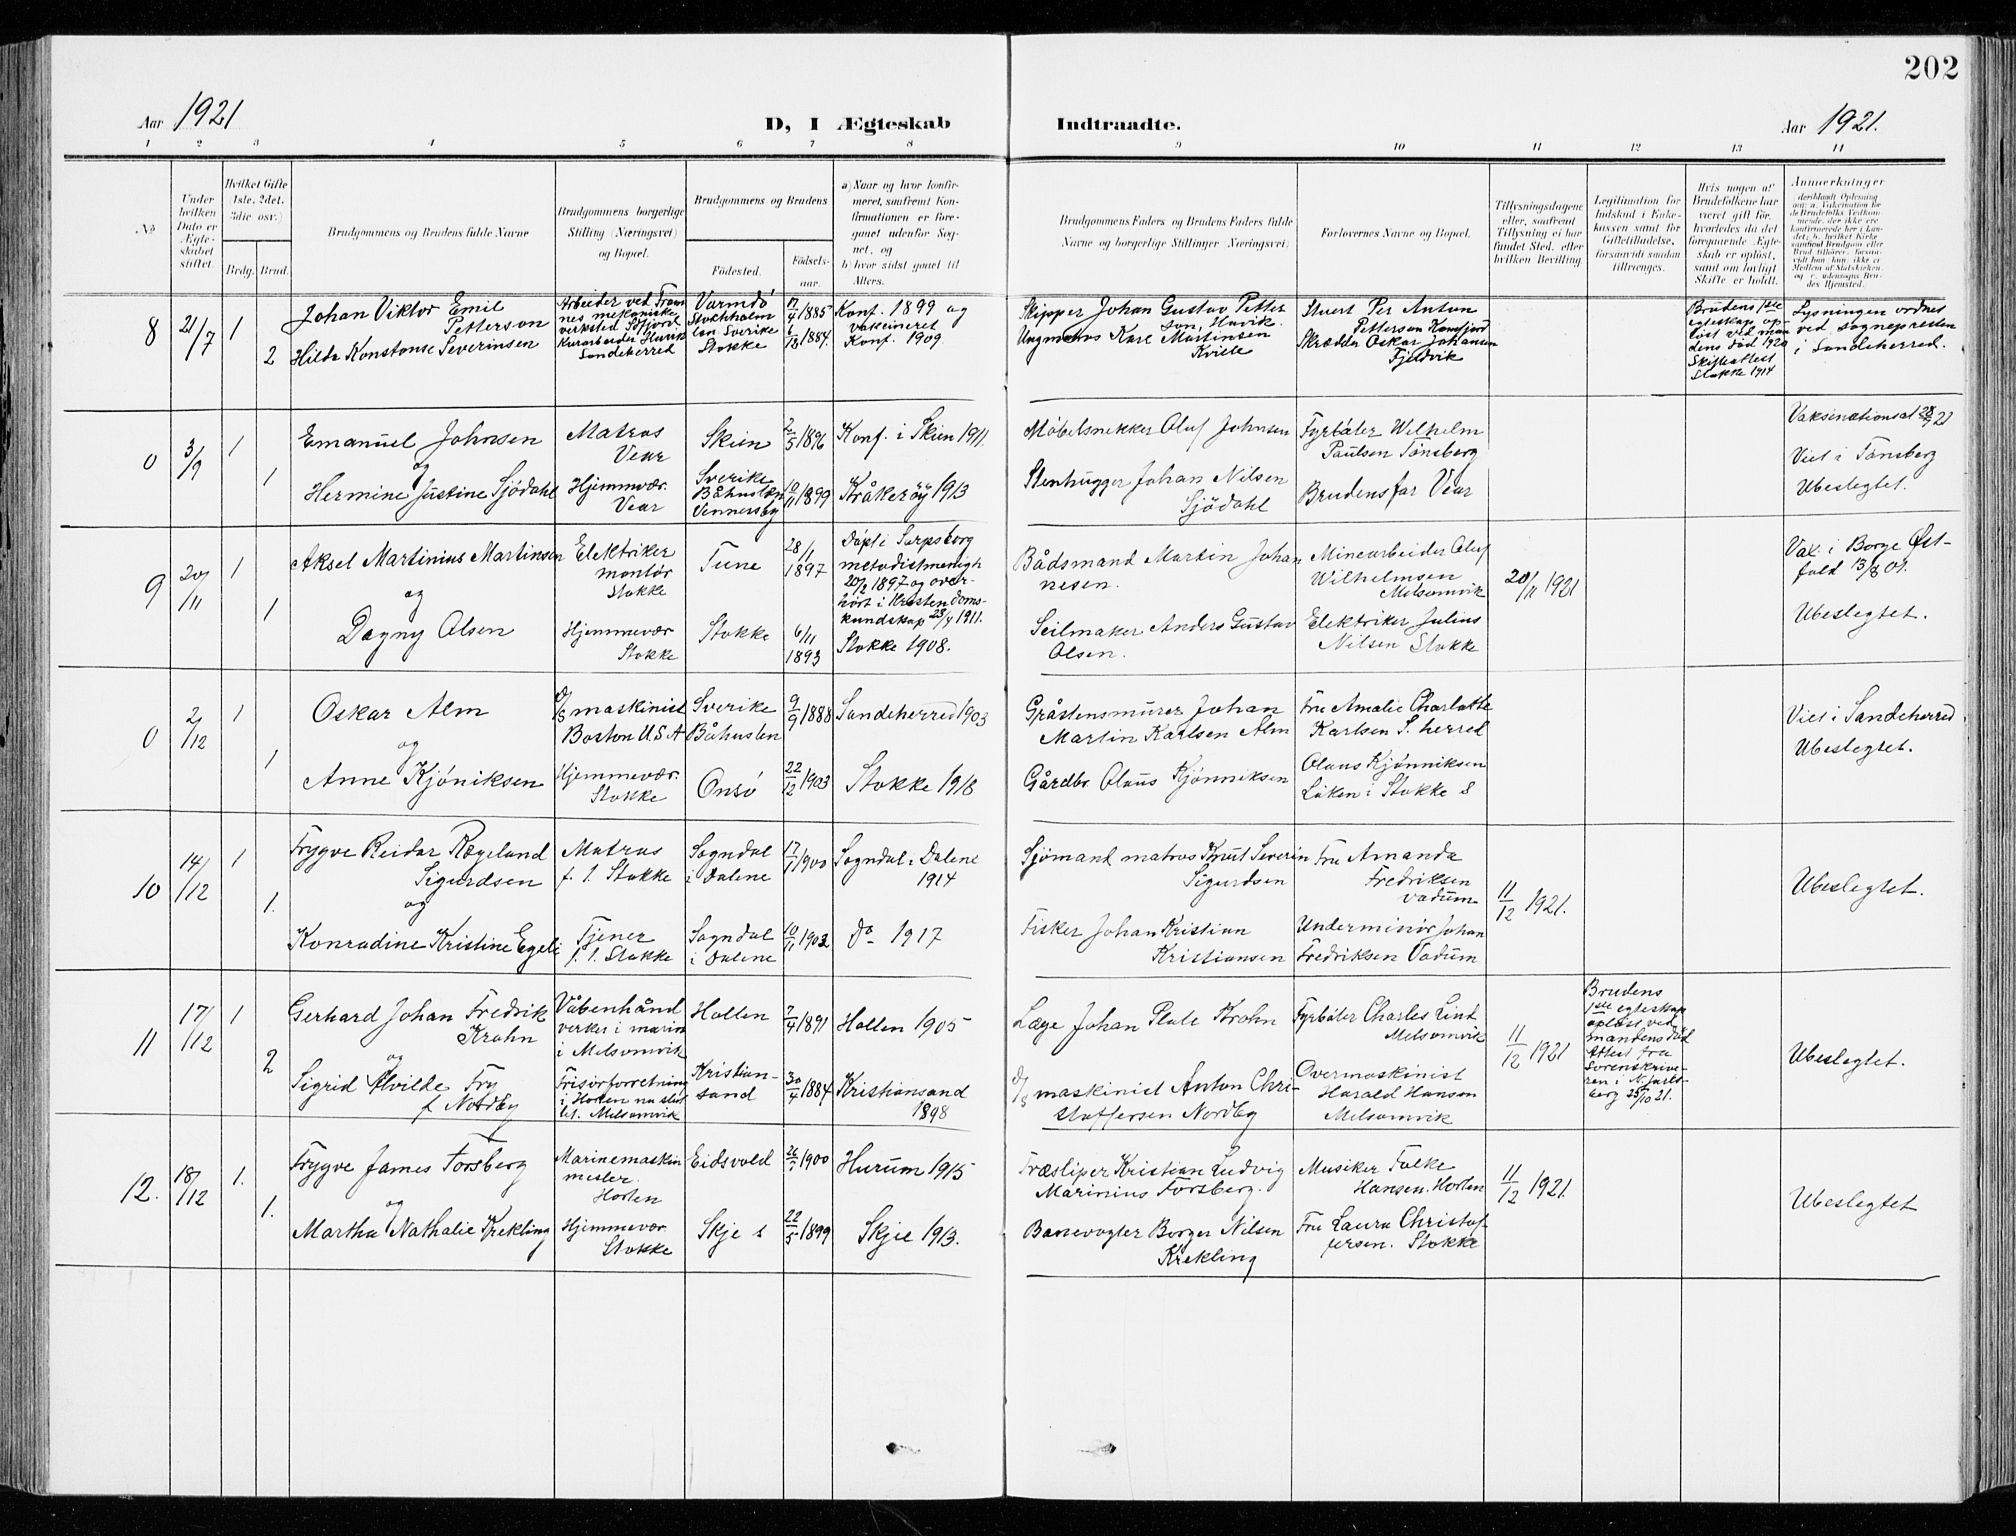 202
Aar 1921
D, I Ægteskab
Indtraadte.
Aar 1921.
1 2 3 4 5 6 7 8 9 10 11 12 13 14
No
Under hvilken Dato er Ægteskabet stiftet
Hvilket Gifte 1ste, 2det, 3die osv.)
Brdg. Brud.
Brudgommens og Brudens fulde Navne
Brudgommens borgerlige Stilling (Næringsvei) og Bopæl.
Brudgommens og Brudens
Fødested.
Fødselsaar.
a) Naar og hvor konfirmeret, saafremt Konfirmationen er foregaaet udenfor Sognet, og
b) hvor sidst gaaet til Alters.
Brudgommens Faders og Brudens Faders fulde Navne og borgerlige Stillinger (Næringsvei)
Forlovernes Navne og Bopæl.
Tillysningsdagene eller, saafremt Tillysning ei har fundet Sted, efter hvilken Bevilling
Legitimation for Indskud i Enkekassen samt for Giftetilladelse, forsaavidt saadan tiltrænges.
Hvis nogen af Brudefolkene har været gift før, hvorledes da det foregaaende Ægteskab er opløst, samt om lovligt Skifte er holdt.
Anmærkninger
8 21/7 1
Johan Viktor Emil
Petterson
Arbeider ved Fram
nes mekaniske
verksted
Varmdö
Stokholm
län Sverike
17/4 1885
Konf. 1899 og
vakcineret
Skipper Johan Gustav Petter
son, Huvik.
Stuert Per Anton
Petterson
Brudens 1ste
egteskap op
løst ved man
dens død 1920
Skifteattest
Stokke 1914
Lysningen ordnet
ved sognepresten
i Sandeherred.
2
Hilda Konstanse Severinsen
Sandeherred
Stokke
6/12 1884.
Konf. 1909
Kare Martinsen
Skrædder Oskar Johansen
Fjeldvik
0 3/9 1
Emanuel Johnsen
og
Matros
Vear
Skien
2/5 1896
Konf. i Skien 1911.
Møbelsnekker Oluf Johnsen
Fyrbøter Wilhelm
Paulsen Tønsberg
Vaksinationsat 28/7 21
Viet i Tønsberg
Ubeslegtet.
1
Hermine Justine Sjödahl
Hjemmevær.
Vear
Sverike
Båhuslæn
Vennersby
10/11 1899
Kråkerøy 1913
Stenhugger Johan Nilsen
Sjödahl
Brudens far Vear
9 20/11 1
Aksel Martinius Martinsen
og
Elektriker
montør
Stokke
Tune
28/1 1897
Døpt i Sarpsborg
metodistmenigh
20/2 1897 og over-
hørt i Kristendoms-
kundskap 23/4 1911.
Bådsmand Martin Johan
nesen.
Minearbeider Oluf
Wilhelmsen
Melsomvik
20/11 1921
Vax. i Borge Øst-
fold 13/8 01.
Ubeslegtet.
1
Dagny Olsen
Hjemmevær
Stokke
Stokke
6/11 1893
Stokke 1908.
Seilmaker Anders Gustav
Olsen.
Elektriker Julius
Nilsen Stokke
0 2/12 1
Oskar Alm
og
D/S maskinist
Boston U.S.A
Sverike
Båhuslen
9/9 1888
Sandeherred 1903
Gråstensmurer Johan
Martin Karlsen Alm
Fru Amalie Charlotte
Karlsen S. herred
Viet i Sandeherred.
Ubeslegtet.
1
Anne Kjöniksen
Hjemmevær.
Stokke
Onsö
22/12 1903
Stokke 1918
Gårdbr. Olaus Kjønniksen
Olaus Kjønniksen
Løken i Stokke S
10 14/12 1
Trygve Reidar Rægeland
Sigurdsen
og
Matros
f. t. Stokke
Sogndal
i Dalene
17/1 1900
Sogndal i Dalene
1914
Sjømand matros Knut Severin
Sigurdsen
Fru Amanda
Fredriksen
Vadum
11/12 1921.
Ubeslegtet.
1.
Konradine Kristine Egeli
Tjener
f. t. Stokke
Sogndal
i Dalene
10/11 1902
Do 1917
Fisker Johan Kristian
Kristiansen
Underminør Johan
Fredriksen Vadum
11 17/12 1
Gerhard Johan Fredrik
Krohn
og
Våbenhånd
verker i marin
i Melsomvik
Hollen
7/4 1891
Hollen 1905
Læge Johan Plate Krohn
Fyrbøter Charles Lint
Melsomvik
11/12 1921
Brudens
1ste egteskap
opløst ved
mandens død
Attest fra
Sorenskrive-
ren i N. Jarls-
berg 25/10 21.
Ubeslegtet.
2
Sigrid Alvilde Fry
f Nordby
Frisørforretning
i Horten
Melsomvik
Kristian-
sand
30/4 1884
Kristiansand
1898
D/S maskinist Anton Chri-
stoffersen Nordby
Overmaskinist
Harald Hansen
Melsomvik
12. 18/12 1.
Trygve James Forsberg
og
Marinemaskin
mester
Horten
Eidsvold
1900
Hurum 1915
Træsliper Kristian Ludvig
Marinius Forsberg.
Musiker Falke
Hansen. Horten
11/12 1921.
Ubeslegtet
1.
Martha Nathalie Krekling
Hjemmevær
Stokke
Skje s
22/5 1899
Skjee 1913.
Banevogter Borger Nilsen
Krekling
Fru Laura Christof
fersen. Stokke